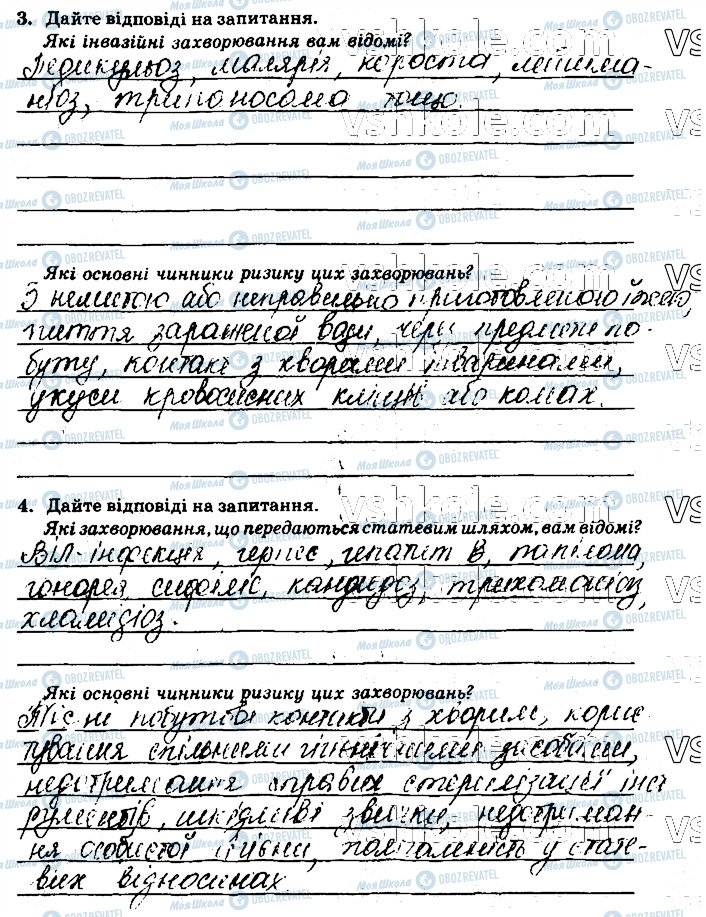 3. Дайте відповіді на запитання.
Які інвазійні захворювання вам відомі?
Педикульоз, малярія, короста, лейшма-
ніоз, трипаносома тощо.
Які основні чинники ризику цих захворювань?
З немитою або неправильно приготовленою їжею,
пиття зараженої води, через предмети по-
буту, контакт з хворими тваринами,
укуси кровосисних кліщів або комах.
4. Дайте відповіді на запитання.
Які захворювання, що передаються статевим шляхом, вам відомі?
ВІЛ-інфекція, герпес, гепатит В, папілома,
гонорея, сифіліс, кандидоз, трихомоніоз,
хламидіоз.
Які основні чинники ризику цих захворювань?
Тісні побутові контакти з хворим, корис
тування спільними гігієнічними засобами,
недотримання правил стерилізації інст
рументів, шкідливі звички, недотриман-
ня особистої гігієни, у стате-
вих відносинах
vshkole.com
Моя Школа
OBOZREVATEL